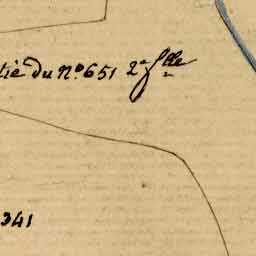 tie du N.o 651 2.e f.lle
341